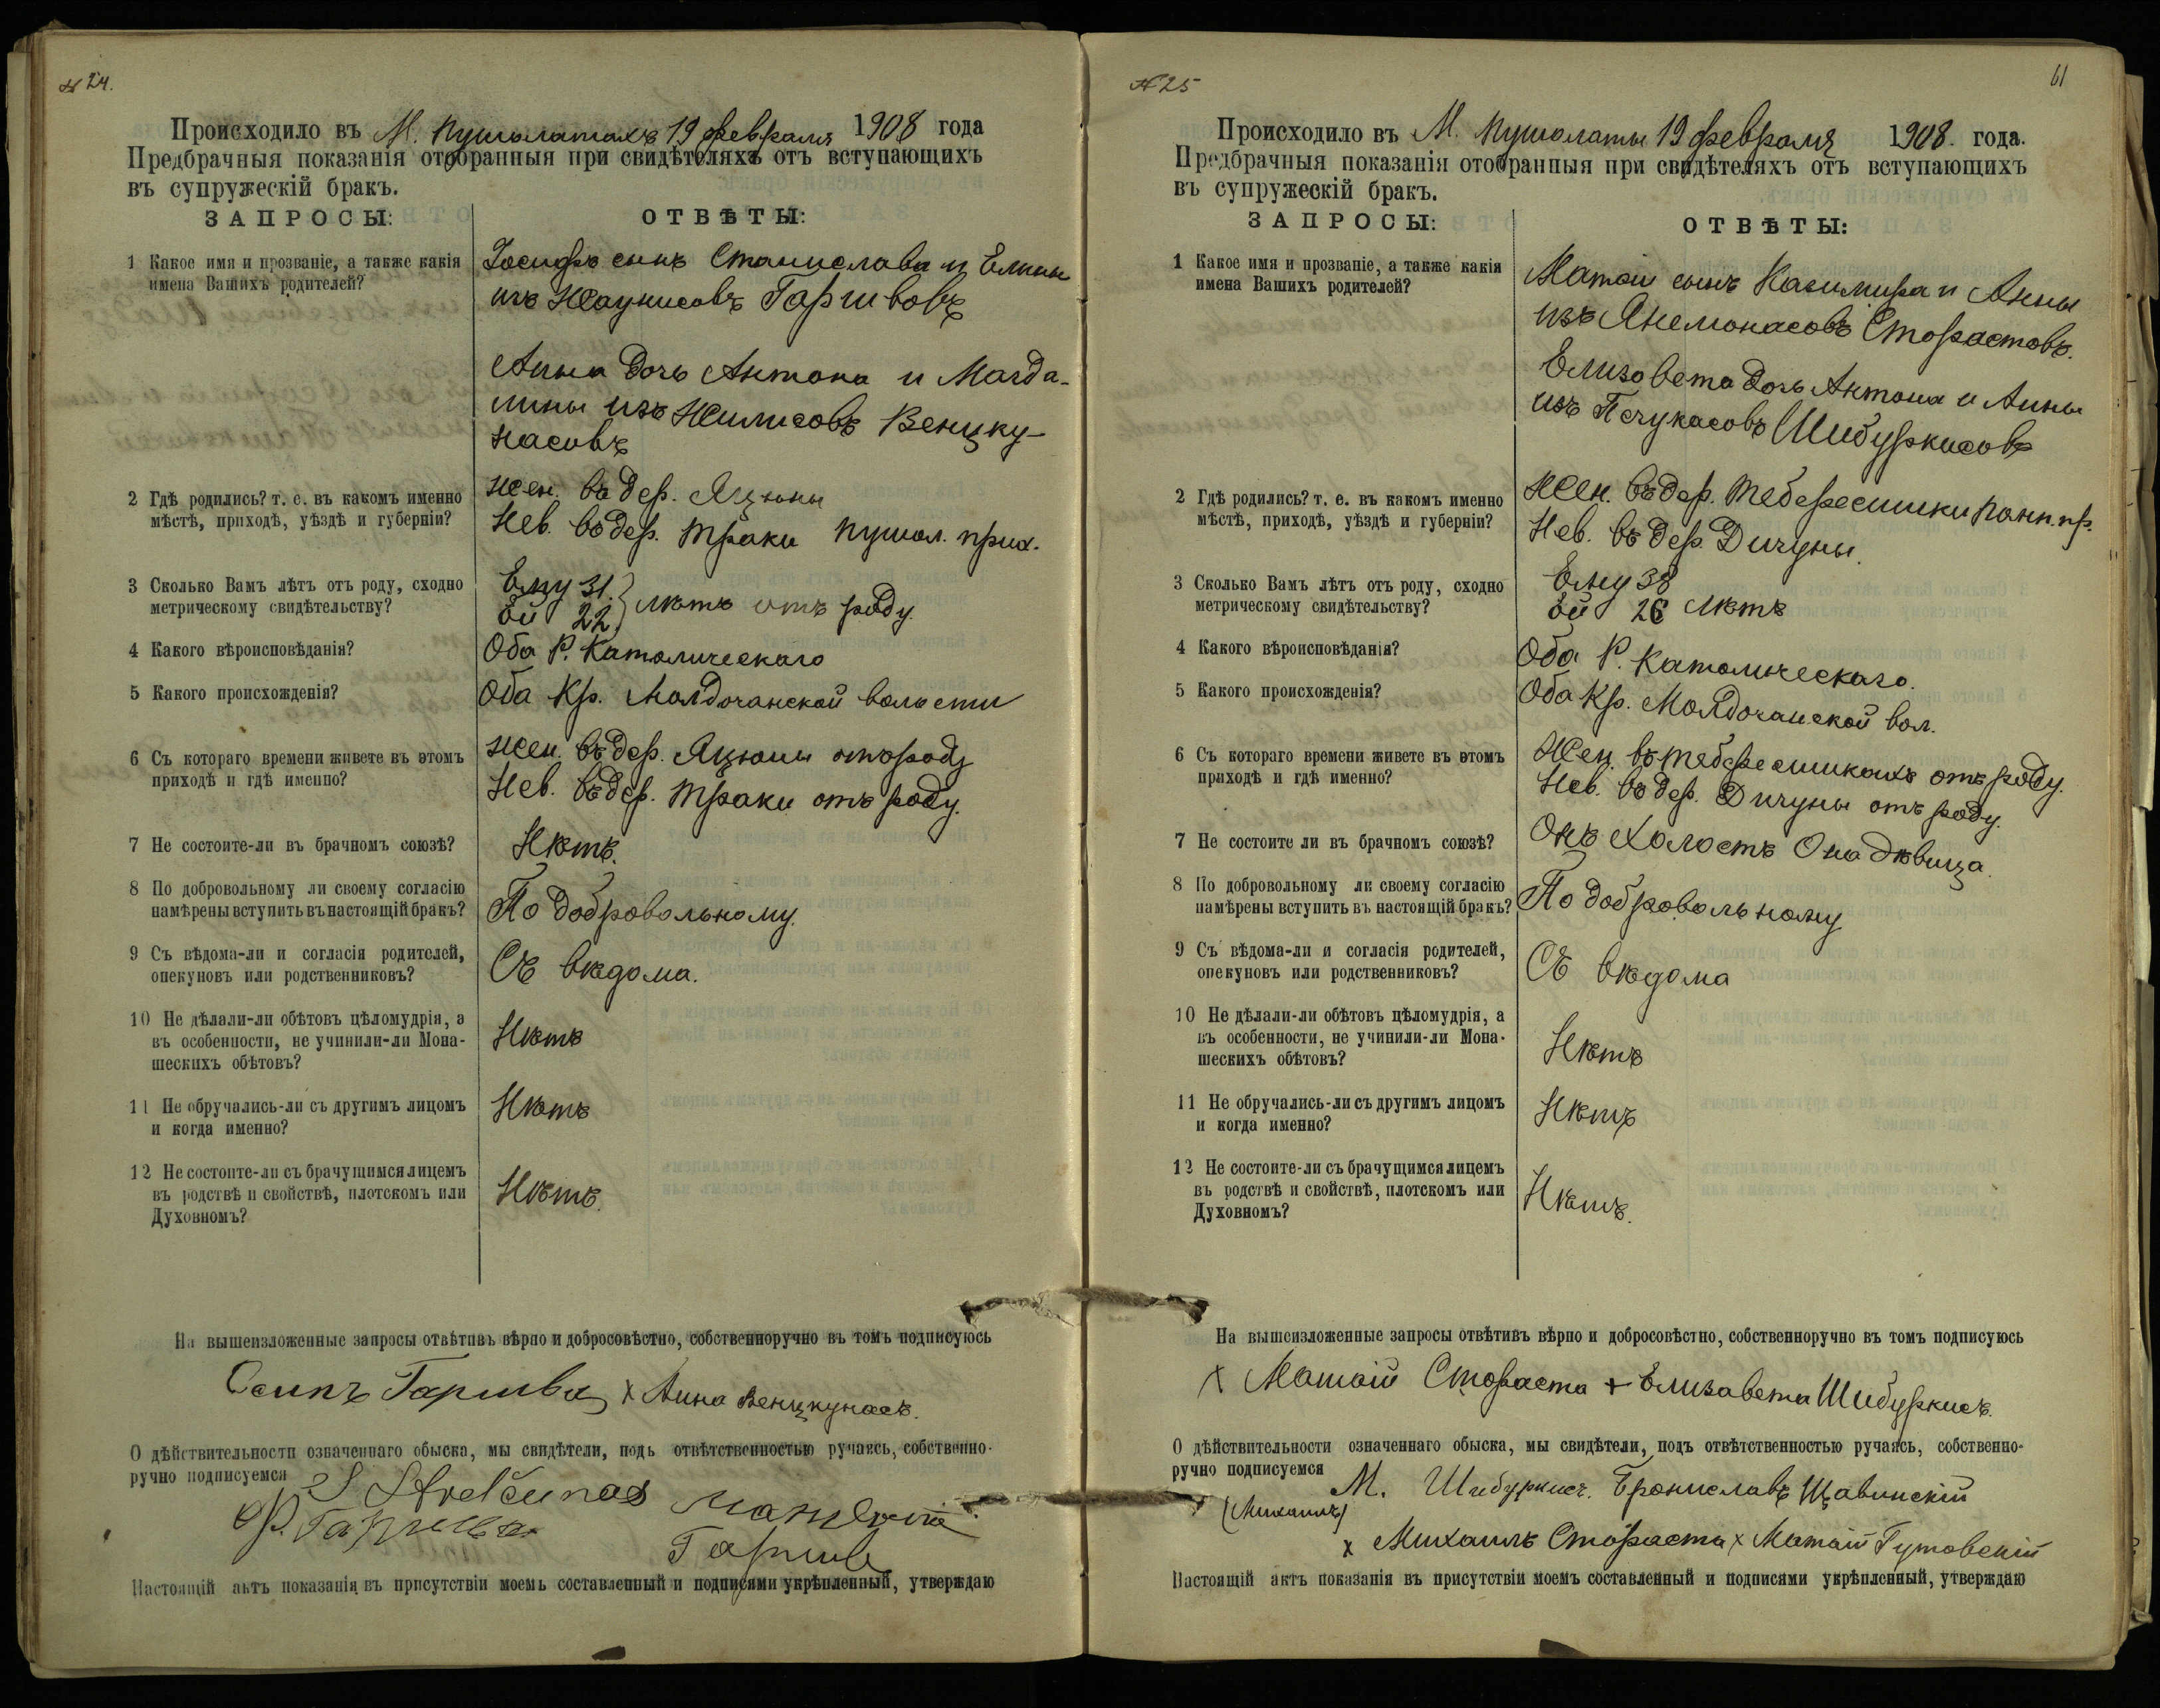 № 24.
Происходило въ М. Пушолатахъ 19 февраля 1908 года
Предбрачныя показанія отобранныя при свидѣтеляхъ отъ вступающихъ
въ супружескій бракъ.
ЗАПРОСЫ: ОТВѢТЫ:
1 Какое имя и прозваніе, а также какія
имена Вашихъ родителей?
Іосифъ сынъ Станислава и Елены
изъ Жаунисовъ Гаршвовъ
Анна дочь Антона и Магда-
лины изъ Жилисовъ Венцку-
насовъ
2 Гдѣ родились? т. е. въ какомъ именно
мѣстѣ, приходѣ, уѣздѣ и губерніи?
Жен. въ дер. Яцюны
Нев. въ дер. Траки Пушол. прих.
3 Сколько Вамъ лѣтъ отъ роду, сходно
метрическому свидѣтельству?
Ему 31.
Ей 22. } лѣтъ отъ роду.
4 Какого вѣроисповѣданія?
Оба Р. Католическаго
5 Какого происхожденія?
Оба Кр. Молдочанской волости
6 Съ котораго времени живете въ этомъ
приходѣ и гдѣ именно?
Жен. въ дер. Яцюны отъ роду
Нев. въ дер. Траки отъ роду.
7 Не состоите-ли въ брачномъ союзѣ?
Нѣтъ.
8 По добровольному ли своему согласію
намѣрены вступить въ настоящій бракъ?
По добровольному.
9 Съ вѣдома-ли и согласія родителей,
опекуновъ или родственниковъ?
Съ вѣдома.
10 Не дѣлали-ли обѣтовъ цѣломудрія, а
въ особенности, не учинили-ли Мона-
шескихъ обѣтовъ?
Нѣтъ
11 Не обручались-ли съ другимъ лицомъ
и когда именно?
Нѣтъ
12 Не состоите-ли съ брачущимся лицемъ
въ родствѣ и свойствѣ, плотскомъ или
Духовномъ?
Нѣтъ.
На вышеизложенные запросы отвѣтивъ вѣрно и добросовѣстно, собственноручно въ томъ подписуюсь
Осипъ Гаршва х Анна Венцкунасъ.
О дѣйствительности означеннаго обыска, мы свидѣтели, подъ отвѣтственностью ручаясь, собственно-
ручно подписуемся
S Strelčunas
Гаршва
Настоящій актъ показанія въ присутствіи моемъ составленный и подписями укрѣпленный, утверждаю
№ 25
61
Происходило въ М. Пушолаты 19 февраля 1908. года.
Предбрачныя показанія отобранныя при свидѣтеляхъ отъ вступающихъ
въ супружескій бракъ.
ЗАПРОСЫ: ОТВѢТЫ:
1 Какое имя и прозваніе, а также какія
имена Вашихъ родителей?
Матѳій сынъ Казимира и Анны
изъ Янемонасовъ Сторастовъ.
Елизовета дочь Антона и Анны
изъ Печукасовъ Шибуркисовъ
2 Гдѣ родились? т. е. въ какомъ именно
мѣстѣ, приходѣ, уѣздѣ и губерніи?
Жен. въ дер. Теберешишки пр.
Нев. въ дер. Дичуны.
3 Сколько Вамъ лѣтъ отъ роду, сходно
метрическому свидѣтельству?
Ему 38
Ей 26 лѣтъ
4 Какого вѣроисповѣданія?
Оба Р. Католическаго.
5 Какого происхожденія?
Оба Кр. Молдочанской вол.
6 Съ котораго времени живете въ этомъ
приходѣ и гдѣ именно?
Жен. въ Теберешишкахъ отъ роду.
Нев. въ дер. Дичуны отъ роду.
7 Не состоите ли въ брачномъ союзѣ?
Онъ холостъ Она дѣвица.
8 По добровольному ли своему согласію
намѣрены вступить въ настоящій бракъ?
По добровольному
9 Съ вѣдома-ли и согласія родителей,
опекуновъ или родственниковъ?
Съ вѣдома
10 Не дѣлали-ли обѣтовъ цѣломудрія, а
въ особенности, не учинили-ли Мона-
шескихъ обѣтовъ?
Нѣтъ
11 Не обручались-ли съ другимъ лицомъ
и когда именно?
Нѣтъ
12 Не состоите-ли съ брачущимся лицемъ
въ родствѣ и свойствѣ, плотскомъ или
Духовномъ?
Нѣтъ.
На вышеизложенные запросы отвѣтивъ вѣрно и добросовѣстно, собственноручно въ томъ подписуюсь
х Матѳій Стораста + Елизавета Шибуркисъ.
О дѣйствительности означеннаго обыска, мы свидѣтели, подъ отвѣтственностью ручаясь, собственно-
ручно подписуемся М. Шибуркисъ. Брониславъ Щавинскій
(Михаилъ)
х Михаилъ Стораста х Матѳій Гутовскій
Настоящій актъ показанія въ присутствіи моемъ составленный и подписями укрѣпленный, утверждаю